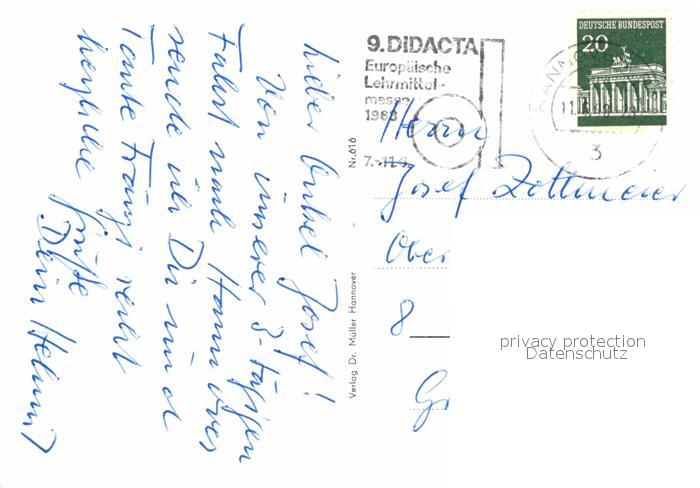 Lieber Onkel Josef!
Von unserer 3-tägigen
Fahrt nach Hannover
sende ich Dir und
Tante Fränzi recht
herzliche Grüße
Dein Helmut
Nr. 616
Verlag Dr. Müller Hannover
9. DIDACTA
Europäische
Lehrmittel-
messe
1968
7.-11.6.
DEUTSCHE BUNDESPOST
20
HANNO
3
Herrn
Josef Zollmeier
Ober
8
Gr
privacy protection
Datenschutz